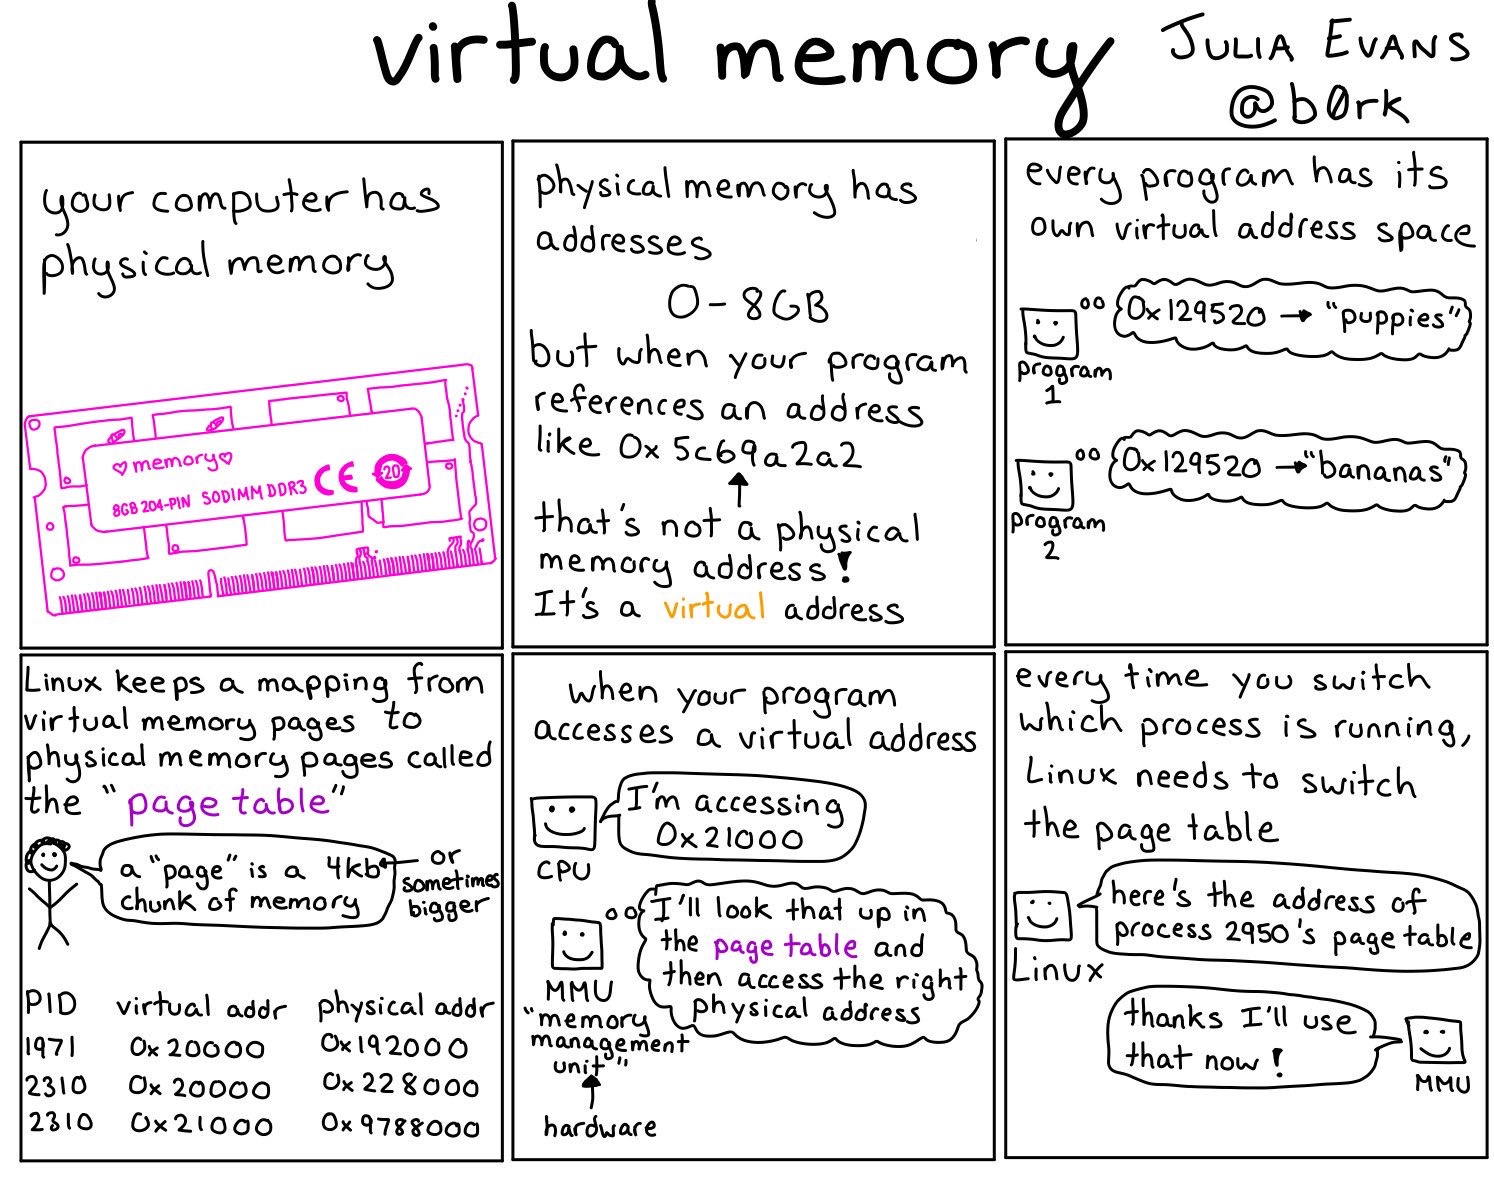 virtual memory
JULIA EVANS
@b0rk
your computer has
physical memory
♡memory♡
8GB 204-PIN SODIMM DDR3 CE 20
physical memory has
addresses
0-8GB
but when your program
references an address
like 0x5c69a2a2
that's not a physical
memory address!
It's a virtual address
every program has its
own virtual address space
0x129520 → "puppies"
program
1
0x129520 → "bananas"
program
2
Linux keeps a mapping from
virtual memory pages to
physical memory pages called
the "page table"
a "page" is a 4kb ← or
chunk of memory sometimes
bigger
PID virtual addr physical addr
1971 0x20000 0x192000
2310 0x20000 0x228000
2310 0x21000 0x9788000
when your program
accesses a virtual address
I'm accessing
0x21000
CPU
I'll look that up in
the page table and
then access the right
physical address
MMU
"memory
management
unit"
hardware
every time you switch
which process is running,
Linux needs to switch
the page table
here's the address of
process 2950's page table
Linux
thanks I'll use
that now!
MMU